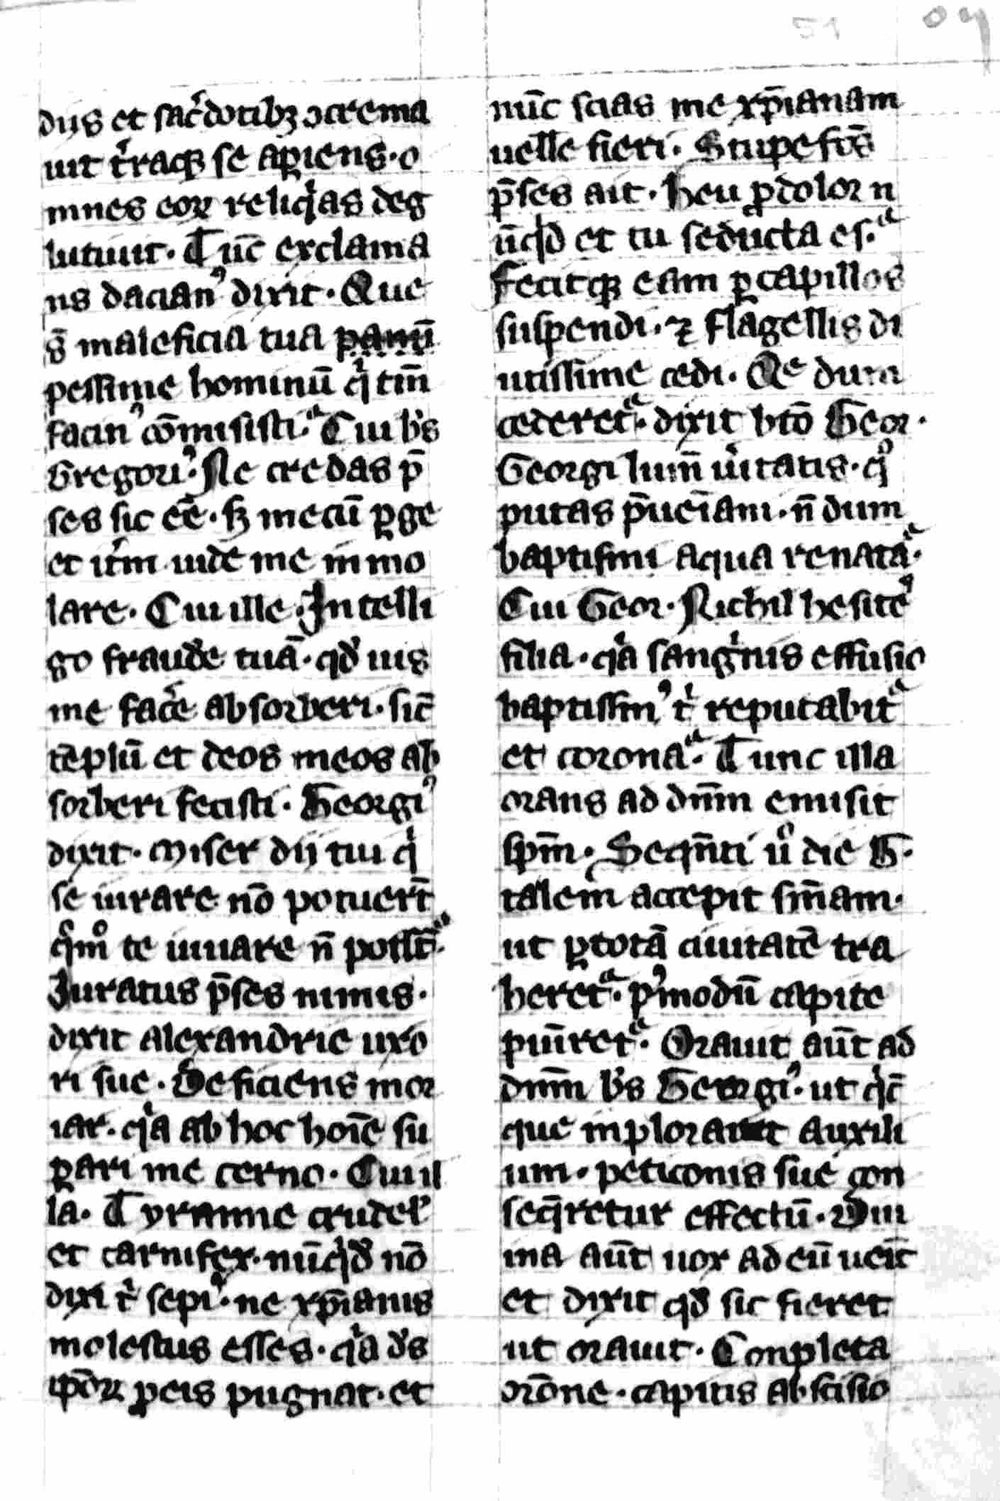 dus et sac̉dotibꝫ ↄcrema
uit t̉raqꝫ se apiens · o
mnes eoꝝ reliq̉as deg
lutiuit · Tūc exclama
ns dacianꝰ dixit · Que
s̄ maleficia tua
pessime hominū q̉ tm̄
facinꝰ cōmisisti · Cui bt̄s
Gregoriꝰ · Ne credas p̄
ses sic eē̄ · sꝫ mecū ꝑge
et it̉m uide me inmo
lare · Cui ille · Intelli
go fraudē tuā · qđ uis
me fac̉e absorberi · sic̄
tēplū et deos meos ab
sorberi fecisti · Georgiꝰ
dixit · Miser dij tui q̉
se iuuare nō potuert̄
qͦmͦ te iuuare n̄ possūt ·
Iuratus p̄ses nimis ·
dixit alexandrie uxo
ri sue · Deficiens mor
iar · q̉a ab hoc hoīe su
ꝑari me cerno · Cui il
la · Tyranne crudel̉
et carnifex · nūq̉d nō
dixi t̉ sepiꝰ · ne xp̄ianis
molestus esses · q̉a d̄s
ip̄oꝝ ꝓ eis pugnat · et
nūc scias me xp̄ianam
uelle fieri · Stupefc̄s
p̄ses ait · heu ꝓdolor n
ūq̉d et tu seducta es ·
Fecitqꝫ eam ꝑ capillos
suspendi · ⁊ flagellis di
utissime cedi · Qᵉ dum
cederetᷣ · dixit bt̄o Geor ·
Georgi lum̄ ủitatis · qͦ
putas p̄ueīam · n̄dum
baptismi aqua renata ·
Cui Geor · Nichil hesitꝰ
filia · q̉a sang̉nis effusio
baptissmꝰ t̉ reputabitᷣ
et corona · Tunc illa
orans ad dn̄m emisit
sp̄m · Seqn̄ti ůͦ die G ·
talem accepit sn̄iam ·
ut ꝑ totā ciuitatē tra
heretᷣ · pꝰmodū capite
pun̄retᷣ · Orauit aūt ad
dn̄m bt̄s Georgiꝰ · ut q̉c̄
que inplorauit auxili
um · peticonis sue con
seq̄retur effectū · Diui
na aūt uox ad eū uen̄
et dixit qđ sic fieret
ut orauit · Conpleta
orōne · capitis abscisio